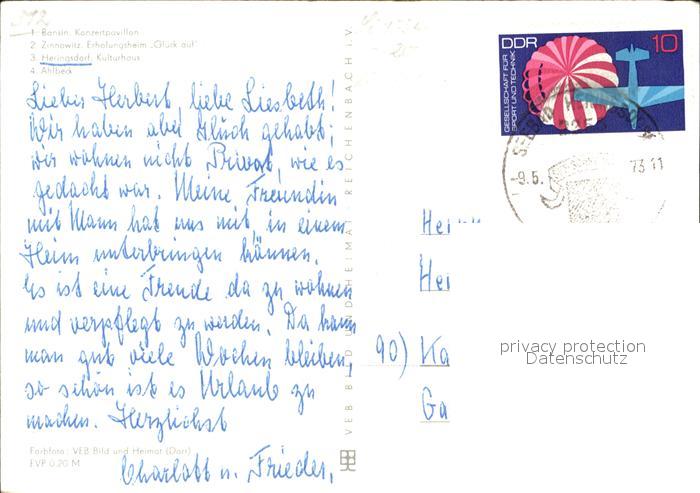 1. Bansin. Konzertpavillon
2. Zinnowitz. Erholungsheim „Glück auf"
3. Heringsdorf. Kulturhaus
4. Ahlbeck
Lieber Herbert, liebe Liesbeth!
Wir haben aber Glück gehabt;
wir wohnen nicht Privat, wie es
gedacht war. Meine Freundin
mit Mann hat uns mit in einem
Heim unterbringen können.
Es ist eine Freude da zu wohnen
und verpflegt zu werden. Da kann
man gut viele Wochen bleiben,
so schön ist es Urlaub zu
machen. Herzlichst
Charlott u. Frieder.
Farbfoto: VEB Bild und Heimat (Darr)
EVP 0,20 M
VEB BILD UND HEIMAT REICHENBACH i. V.
DDR 10
GESELLSCHAFT FÜR
SPORT UND TECHNIK
-9.5.
73-11
Her
Hei
90) Ka
Ga
privacy protection
Datenschutz